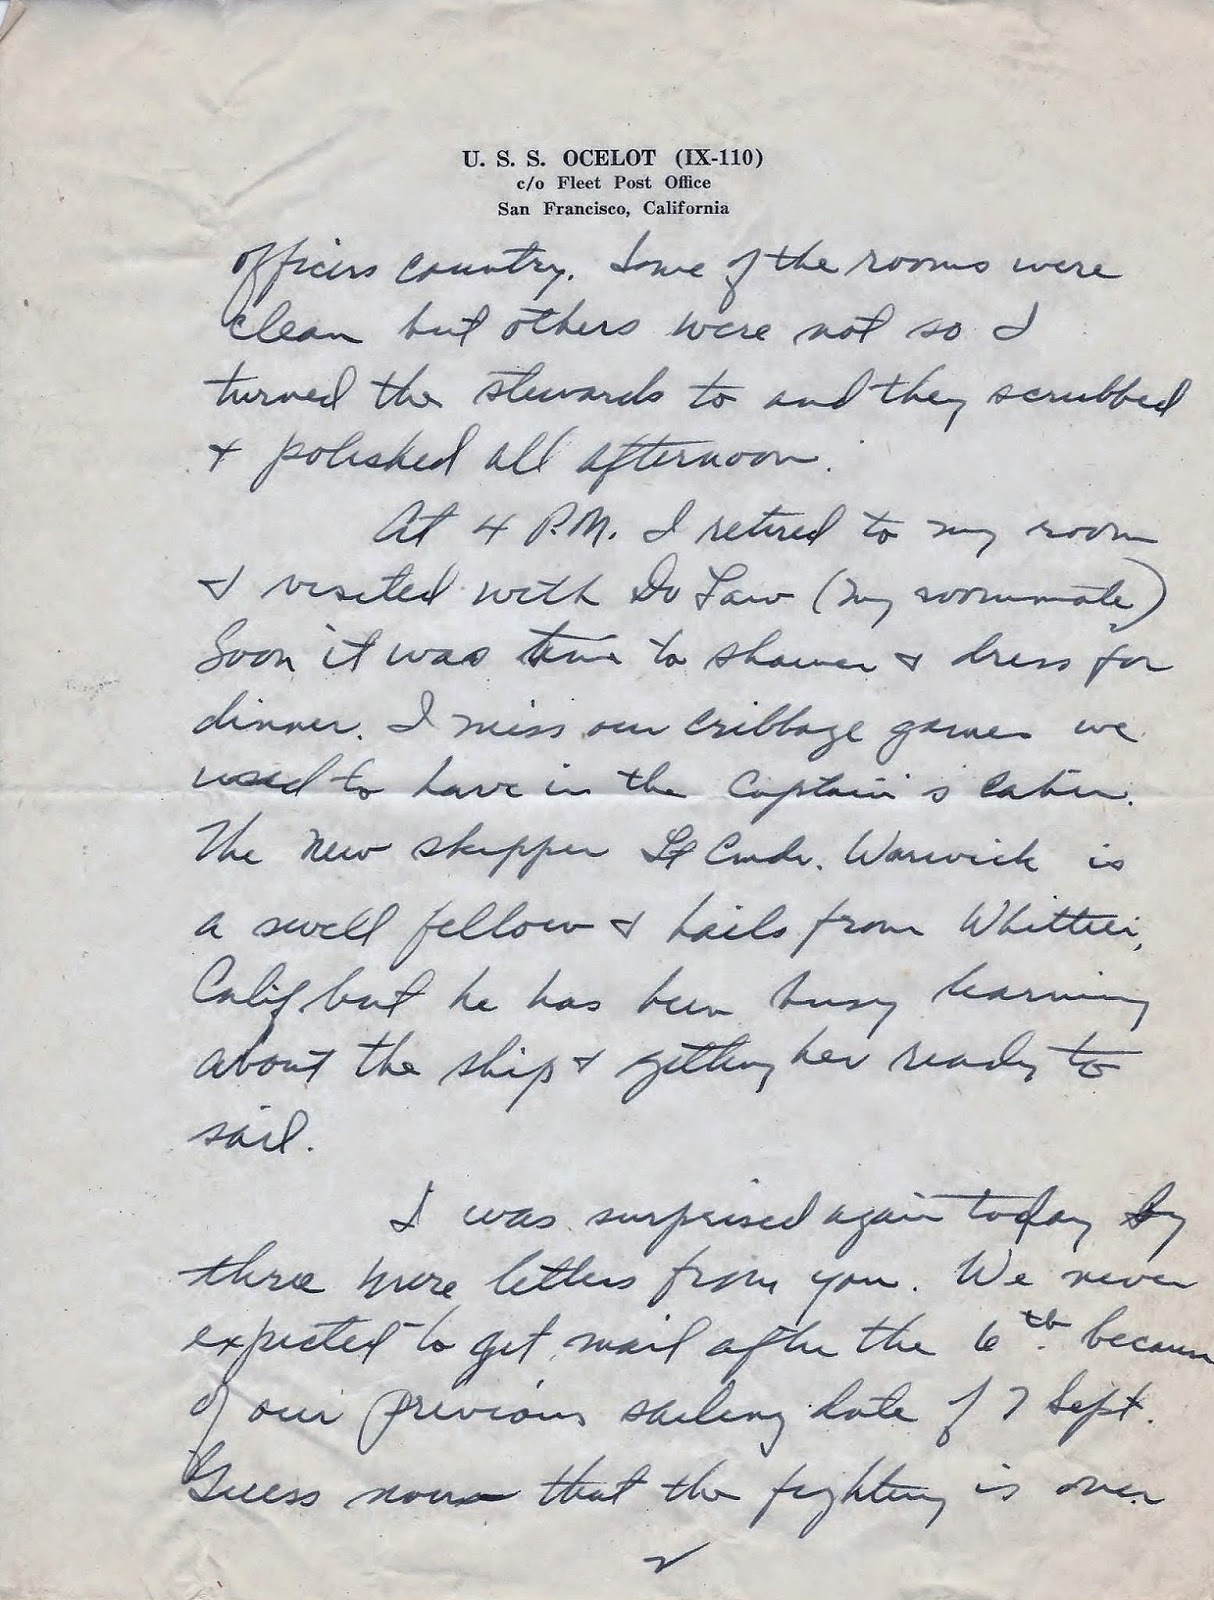 U. S. S. OCELOT (IX-110)
c/o Fleet Post Office
San Francisco, California
officers country. Some of the rooms were
clean but others were not so I
turned the stewards to and they scrubbed
& polished all afternoon.
At 4 P.M. I retired to my room
& visited with Du Law (my roommate)
Soon it was time to shower & dress for
dinner. I miss our cribbage games we
used to have in the Captain's cabin.
The new skipper Lt Cmdr. Warwick is
a swell fellow & hails from Whittier,
Calif but he has been busy learning
about the ship & getting her ready to
sail.
I was surprised again today by
three more letters from you. We never
expected to get mail after the 6th because
of our previous sailing date of 7 Sept.
Guess now that the fighting is over
2